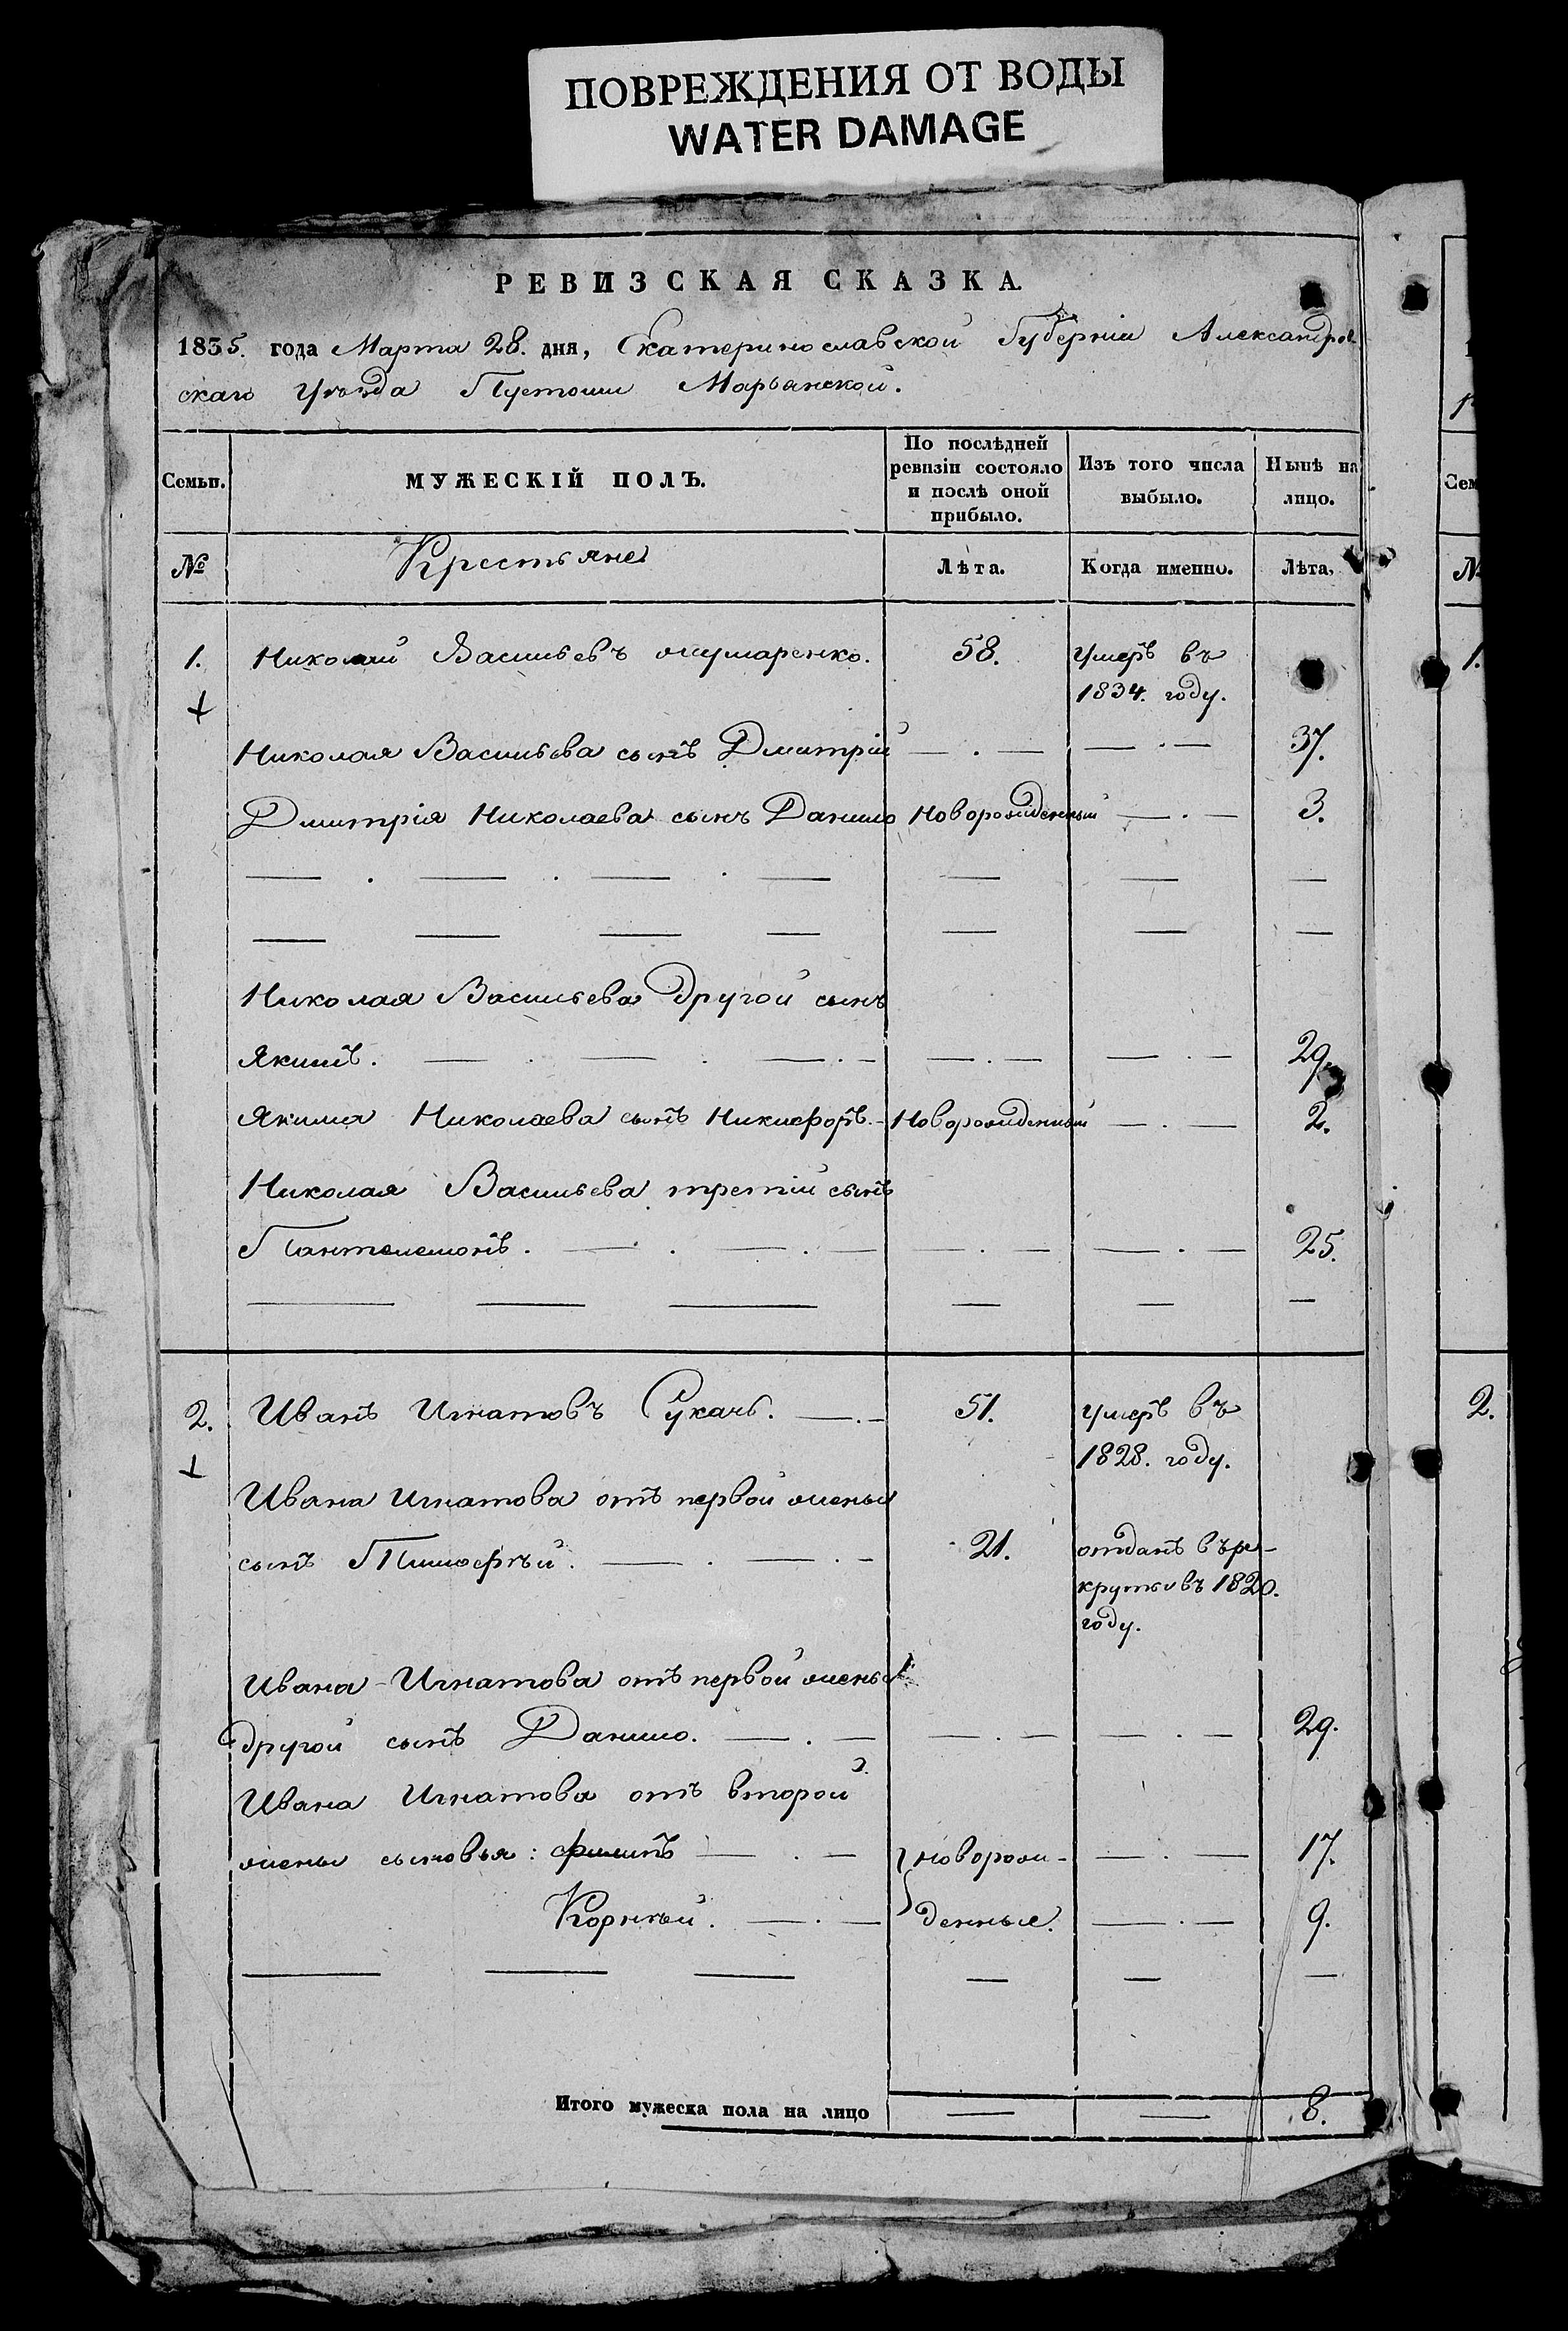 ПОВРЕЖДЕНИЯ ОТ ВОДЫ
WATER DAMAGE
РЕВИЗСКАЯ СКАЗКА.
1835. года Марта 28. дня, Екатеринославской Губерніи Александров
скаго Уѣзда Пустоши Марьанской.
Семьи.
МУЖЕСКІЙ ПОЛЪ.
По послѣдней
ревизіи состояло
и послѣ оной
прибыло.
Изъ того числа
выбыло.
Нынѣ на
лицо.
№ Крестьяне Лѣта. Когда именно. Лѣта.
1. Николай Васильевъ 58. Умеръ въ
1834. году.
Николая Васильева сынъ Дмитрій — . — — . — 37.
Дмитрія Николаева сынъ Данило Новорожденный — . — 3.
Николая Васильева другой сынъ
Якимъ. — . — . — . — — . — — . — 29.
Якима Николаева сынъ Никифоръ. - Новорожденный — . — 2.
Николая Васильева третій сынъ
Пантелемонъ. — . — . — — . — — . — 25.
2. Иванъ Игнатовъ Сукачь. — . — 51. умеръ въ
1828. году.
Ивана Игнатова отъ первой жены
сынъ Тимофѣй. — . — . — 21. отданъ въ ре-
круты въ 1820.
году.
Ивана Игнатова отъ первой жены
другой сынъ Данило. — . — — . — — . — 29.
Ивана Игнатова отъ второй
жены сыновья: Филипъ — . — новорож- — . — 17.
Корнѣй. — . — денные. — . — 9.
Итого мужеска пола на лицо — — 8.
Сем
№
1.
2.